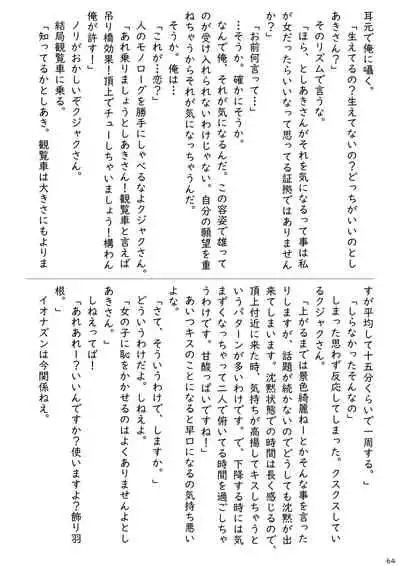 耳元で俺に囁く。
「生えてるの?生えてないの?どっちがいいのとし
あきさん?」
そのリズムで言うな。
「ほら、としあきさんがそれを気になるって事は私
が女だったらいいなって思ってる証拠ではありません
か?」
「お前何言って…」
…そうか。確かにそうか。
なんで俺、それが気になるんだ。この容姿で雄って
のが受け入れられないわけじゃない。自分の願望を重
ねちゃうからそれが気になっちゃうんだ。
そうか。俺は…
「これが…恋?」
人のモノローグを勝手にしゃべるなよクジャクさん。
「あれ乗りましょうとしあきさん!観覧車と言えば
吊り橋効果!頂上でチューしちゃいましょう!構わん
俺が許す!」
ノリがおかしいぞクジャクさん。
結局観覧車に乗る。
「知ってるかとしあき。観覧車は大きさにもよりま
すが平均して十五分くらいで一周する。」
「しらなかったそんなの」
しまった思わず反応してしまった。クスクスしてい
るクジャクさん。
「上がるまでは景色綺麗ねーとかそんな事を言った
りしますが、話題が続かないのでどうしても沈黙が出
来てしまいます。沈黙状態での時間は長く感じるので、
頂上付近に来た時、気持ちが高揚してキスしちゃうと
いうパターンが多いわけです。で、下降する時には気
まずくなっちゃって二人で俯いてる時間を過ごしちゃ
うわけです。甘酸っぱいですね!」
あいつキスのことになると早口になるの気持ち悪い
よな。
「さて、そういうわけで、しますか。」
どういうわけだよ。しねえよ。
「女の子に恥をかかせるのはよくありませんよとし
あきさん。」
しねえってば!
「あれあれー?いいんですか?使いますよ?飾り羽
根。」
イオナズンは今関係ねえ。
64